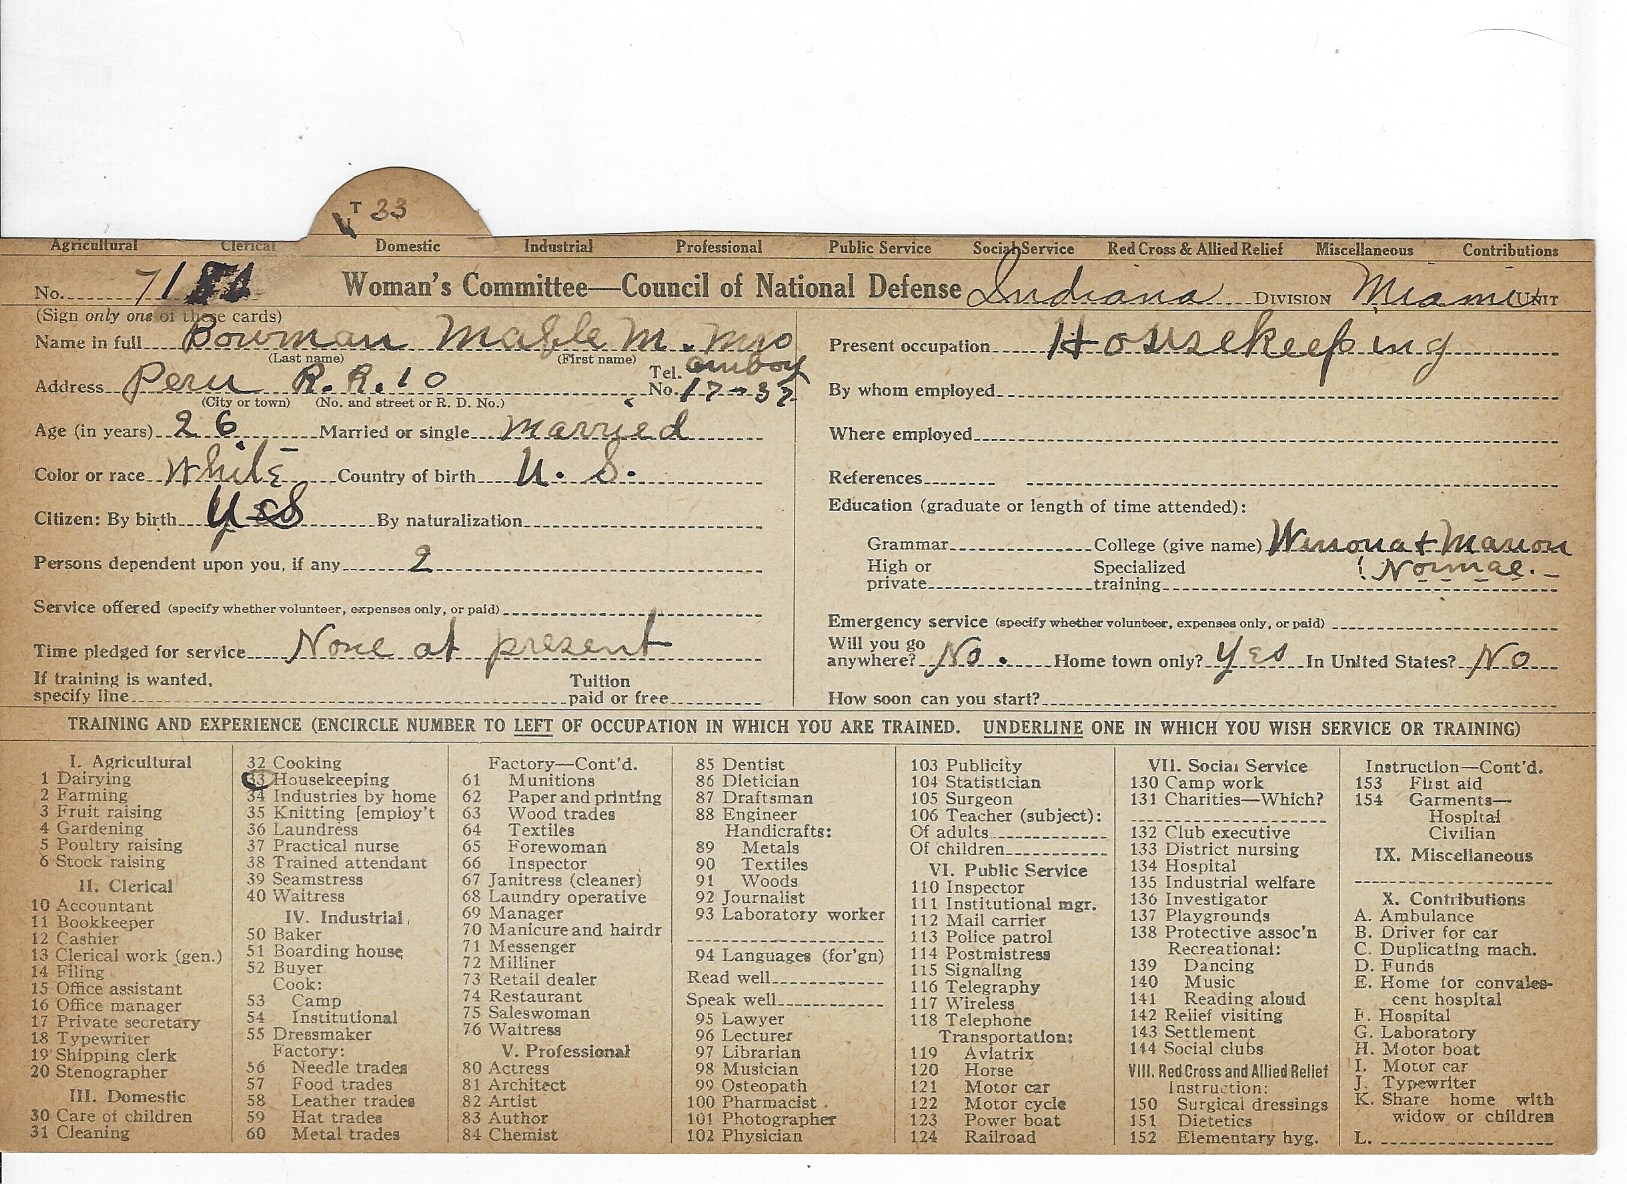 T 33
Agricultural Clerical Domestic Industrial Professional Public Service Social Service Red Cross & Allied Relief Miscellaneous Contributions
No. 71 Woman's Committee—Council of National Defense Indiana DIVISION Miami UNIT
(Sign only one of these cards)
Name in full Bowman Mable M. Mrs
(Last name) (First name)
Address Peru R.R.10 Tel. No. 17-37
(City or town) (No. and street or R. D. No.)
Age (in years) 26 Married or single Married
Color or race White Country of birth U. S.
Citizen: By birth Yes By naturalization
Persons dependent upon you, if any 2
Service offered (specify whether volunteer, expenses only, or paid)
Time pledged for service None at present
If training is wanted, specify line Tuition paid or free
Present occupation Housekeeping
By whom employed
Where employed
References
Education (graduate or length of time attended):
Grammar College (give name) Winona + Marion
High or private Specialized training Normal.
Emergency service (specify whether volunteer, expenses only, or paid)
Will you go anywhere? No. Home town only? Yes In United States? No
How soon can you start?
TRAINING AND EXPERIENCE (ENCIRCLE NUMBER TO LEFT OF OCCUPATION IN WHICH YOU ARE TRAINED. UNDERLINE ONE IN WHICH YOU WISH SERVICE OR TRAINING)
I. Agricultural
1 Dairying
2 Farming
3 Fruit raising
4 Gardening
5 Poultry raising
6 Stock raising
II. Clerical
10 Accountant
11 Bookkeeper
12 Cashier
13 Clerical work (gen.)
14 Filing
15 Office assistant
16 Office manager
17 Private secretary
18 Typewriter
19 Shipping clerk
20 Stenographer
III. Domestic
30 Care of children
31 Cleaning
32 Cooking
33 Housekeeping
34 Industries by home
35 Knitting [employ't
36 Laundress
37 Practical nurse
38 Trained attendant
39 Seamstress
40 Waitress
IV. Industrial
50 Baker
51 Boarding house
52 Buyer
Cook:
53 Camp
54 Institutional
55 Dressmaker
Factory:
56 Needle trades
57 Food trades
58 Leather trades
59 Hat trades
60 Metal trades
Factory—Cont'd.
61 Munitions
62 Paper and printing
63 Wood trades
64 Textiles
65 Forewoman
66 Inspector
67 Janitress (cleaner)
68 Laundry operative
69 Manager
70 Manicure and hairdr
71 Messenger
72 Milliner
73 Retail dealer
74 Restaurant
75 Saleswoman
76 Waitress
V. Professional
80 Actress
81 Architect
82 Artist
83 Author
84 Chemist
85 Dentist
86 Dietician
87 Draftsman
88 Engineer
Handicrafts:
89 Metals
90 Textiles
91 Woods
92 Journalist
93 Laboratory worker
94 Languages (for'gn)
Read well
Speak well
95 Lawyer
96 Lecturer
97 Librarian
98 Musician
99 Osteopath
100 Pharmacist
101 Photographer
102 Physician
103 Publicity
104 Statistician
105 Surgeon
106 Teacher (subject):
Of adults
Of children
VI. Public Service
110 Inspector
111 Institutional mgr.
112 Mail carrier
113 Police patrol
114 Postmistress
115 Signaling
116 Telegraphy
117 Wireless
118 Telephone
Transportation:
119 Aviatrix
120 Horse
121 Motor car
122 Motor cycle
123 Power boat
124 Railroad
VII. Social Service
130 Camp work
131 Charities—Which?
132 Club executive
133 District nursing
134 Hospital
135 Industrial welfare
136 Investigator
137 Playgrounds
138 Protective assoc'n
Recreational:
139 Dancing
140 Music
141 Reading aloud
142 Relief visiting
143 Settlement
144 Social clubs
VIII. Red Cross and Allied Relief
Instruction:
150 Surgical dressings
151 Dietetics
152 Elementary hyg.
Instruction—Cont'd.
153 First aid
154 Garments—
Hospital
Civilian
IX. Miscellaneous
X. Contributions
A. Ambulance
B. Driver for car
C. Duplicating mach.
D. Funds
E. Home for convales-
cent hospital
F. Hospital
G. Laboratory
H. Motor boat
I. Motor car
J. Typewriter
K. Share home with
widow or children
L.